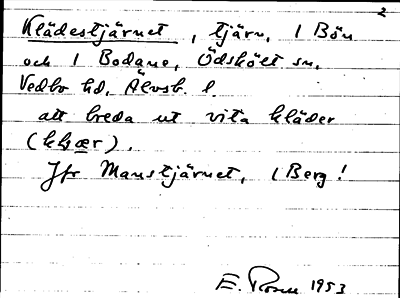 2
Klädestjärnet, tjärn, 1 Bön
och 1 Bodane, Ödskölt sn,
Vedbo hd, Älvsb. l.
att breda ut vita kläder
(khær).
Jfr Manstjärnet, 1 Berg!
E. Rosell 1953